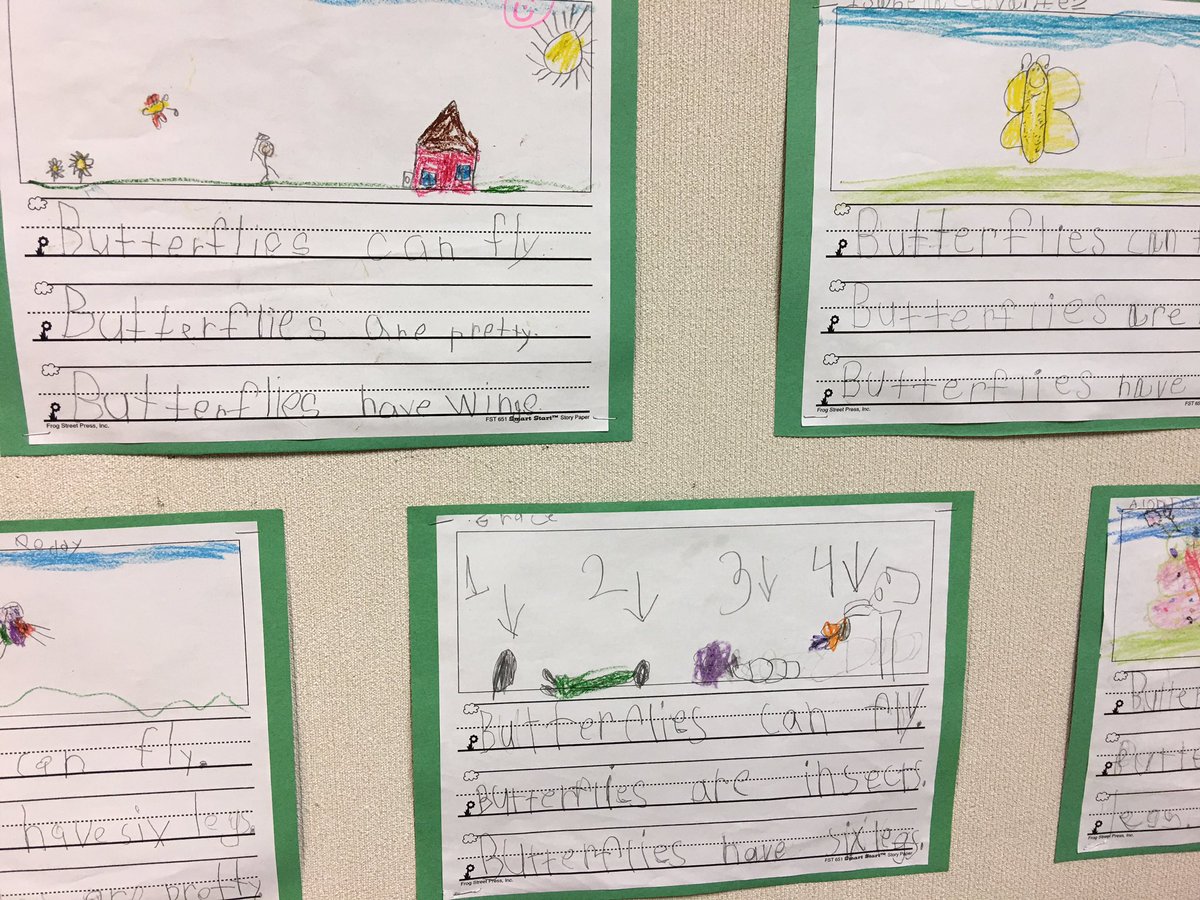 Butterflies can fly.
Butterflies are pretty.
Butterflies have wings
Frog Street Press, Inc.
FST 651 Smart Start™ Story Paper
Butterflies can
Butterflies are
Butterflies have
Frog Street Press, Inc.
can fly.
have six legs.
are pretty
Grace
1 2 3 4
Butterflies can fly.
Butterflies are insects.
Butterflies have six legs.
Frog Street Press, Inc.
FST 651 Smart Start™ Story Paper
Butte
Butte
legs.
Frog Street Press, Inc.